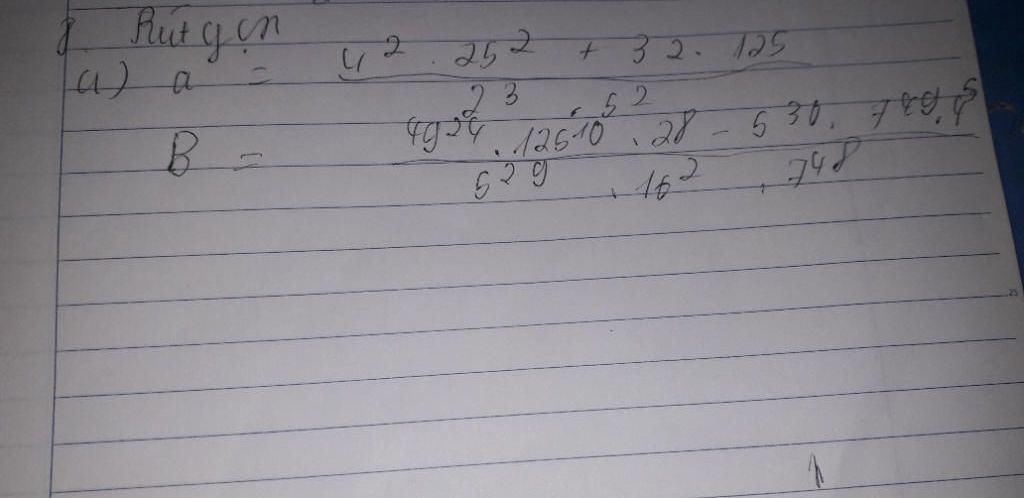 Rút gọn
a) a = 4² . 25² + 32 . 125
2³ . 5²
B = 49²⁴ . 125¹⁰ . 2⁸ - 5³⁰ . 7⁴⁹ . 4⁵
5²⁹ . 16² . 7⁴⁸